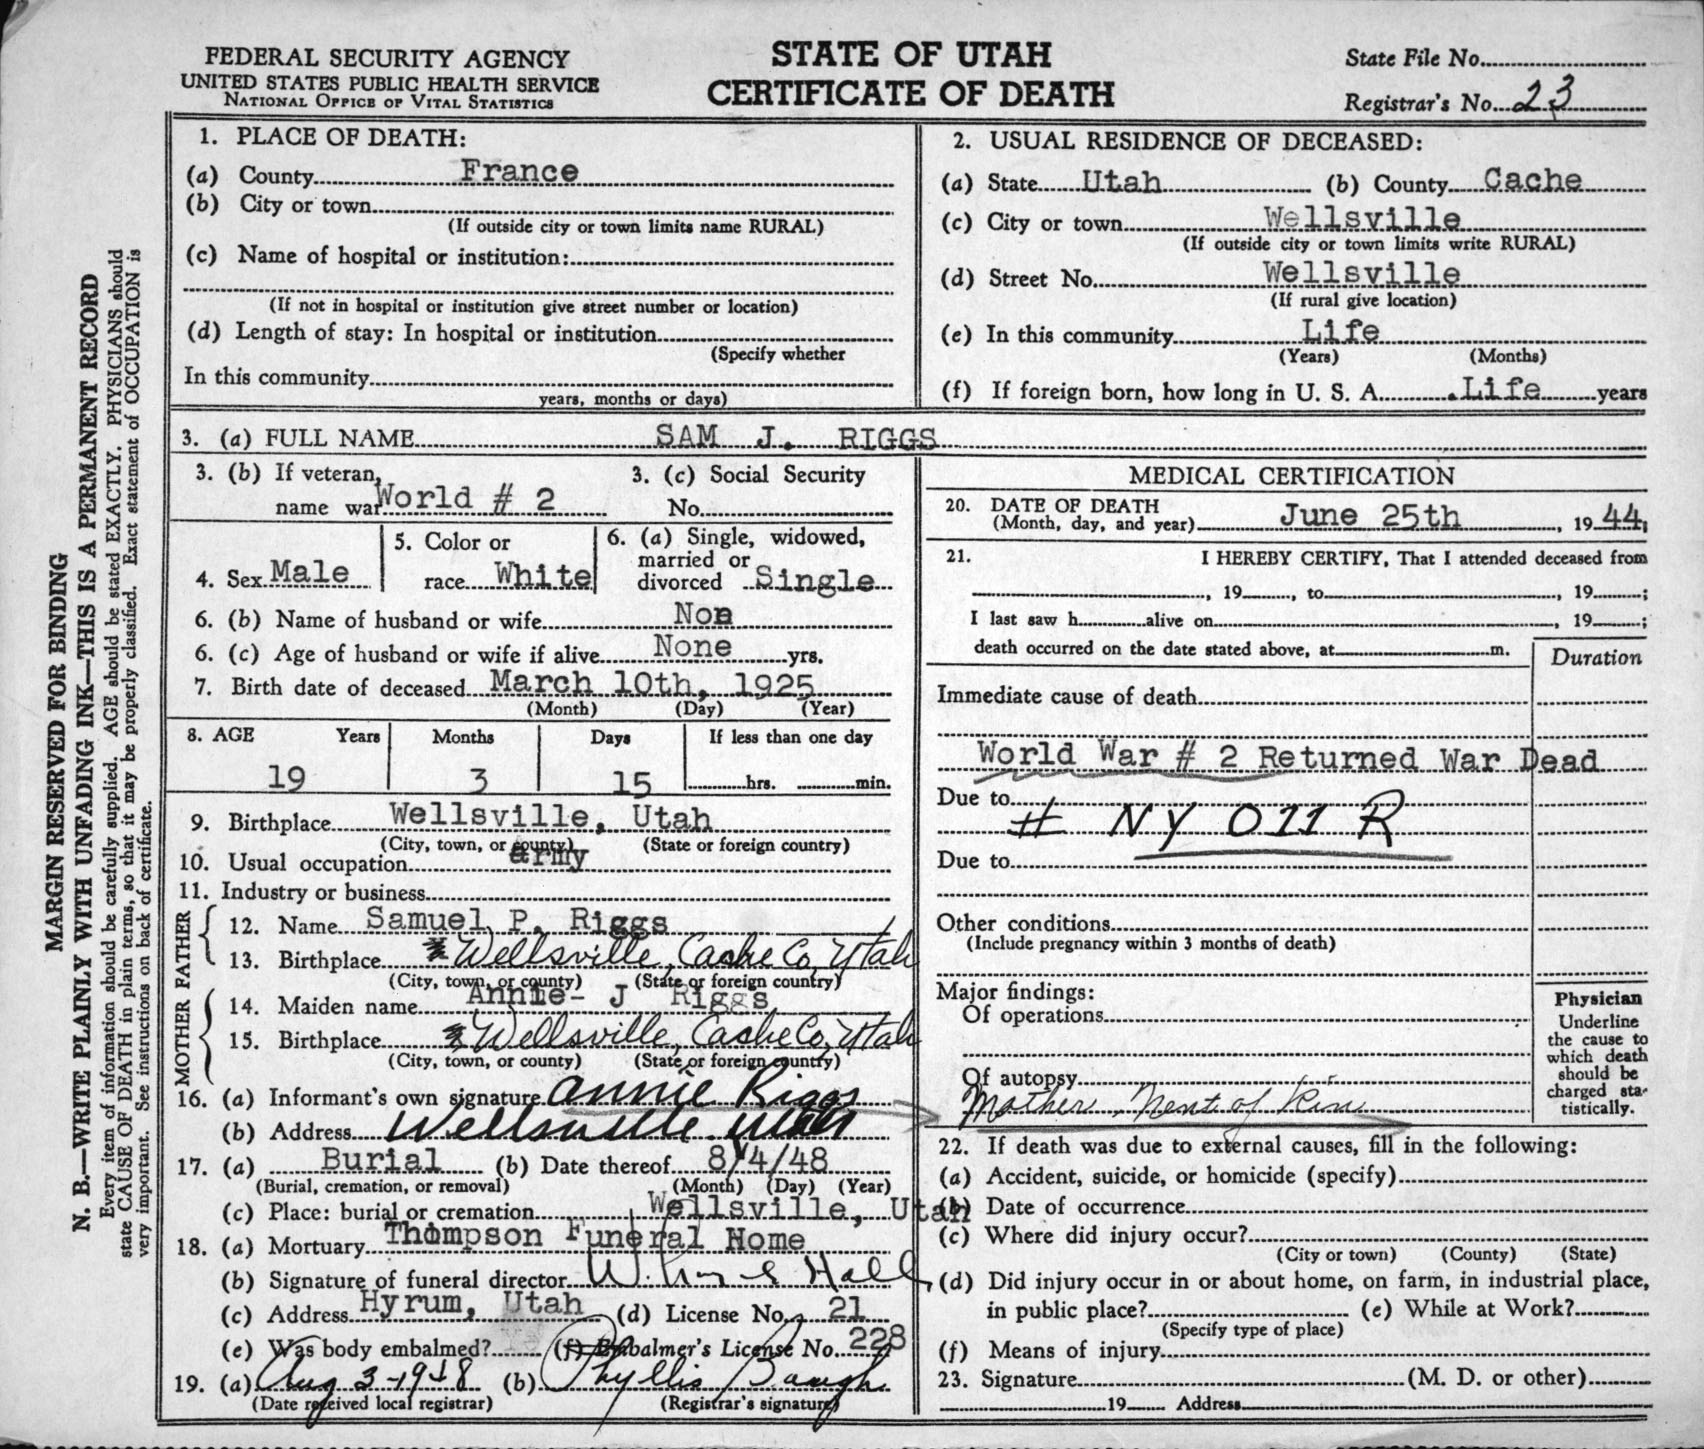 FEDERAL SECURITY AGENCY
UNITED STATES PUBLIC HEALTH SERVICE
NATIONAL OFFICE OF VITAL STATISTICS
STATE OF UTAH
CERTIFICATE OF DEATH
State File No.
Registrar's No. 23
MARGIN RESERVED FOR BINDING
N. B.—WRITE PLAINLY WITH UNFADING INK—THIS IS A PERMANENT RECORD
Every item of information should be carefully supplied. AGE should be stated EXACTLY. PHYSICIANS should
state CAUSE OF DEATH in plain terms, so that it may be properly classified. Exact statement of OCCUPATION is
very important. See instructions on back of certificate.
1. PLACE OF DEATH:
(a) County France
(b) City or town
(If outside city or town limits name RURAL)
(c) Name of hospital or institution:
(If not in hospital or institution give street number or location)
(d) Length of stay: In hospital or institution
(Specify whether
In this community
years, months or days)
2. USUAL RESIDENCE OF DECEASED:
(a) State Utah (b) County Cache
(c) City or town Wellsville
(If outside city or town limits write RURAL)
(d) Street No. Wellsville
(If rural give location)
(e) In this community Life
(Years) (Months)
(f) If foreign born, how long in U. S. A. Life years
3. (a) FULL NAME SAM J. RIGGS
3. (b) If veteran, 3. (c) Social Security
name war World # 2 No.
4. Sex Male
5. Color or
race White
6. (a) Single, widowed,
married or
divorced Single
6. (b) Name of husband or wife Non
6. (c) Age of husband or wife if alive None yrs.
7. Birth date of deceased March 10th, 1925
(Month) (Day) (Year)
8. AGE Years Months Days If less than one day
19 3 15 hrs. min.
9. Birthplace Wellsville, Utah
(City, town, or county) (State or foreign country)
10. Usual occupation army
11. Industry or business
FATHER
12. Name Samuel P. Riggs
13. Birthplace Wellsville, Cache Co, Utah
(City, town, or county) (State or foreign country)
MOTHER
14. Maiden name Annie- J Riggs
15. Birthplace Wellsville, Cache Co, Utah
(City, town, or county) (State or foreign country)
16. (a) Informant's own signature Annie Riggs
(b) Address Wellsville Utah
17. (a) Burial (b) Date thereof 8/4/48
(Burial, cremation, or removal) (Month) (Day) (Year)
(c) Place: burial or cremation Wellsville, Utah
18. (a) Mortuary Thompson Funeral Home
(b) Signature of funeral director W. Hall
(c) Address Hyrum, Utah (d) License No. 21
(e) Was body embalmed? (f) Embalmer's License No. 228
19. (a) Aug 3-1948 (b) Phyllis Baugh
(Date received local registrar) (Registrar's signature)
MEDICAL CERTIFICATION
20. DATE OF DEATH
(Month, day, and year) June 25th, 1944,
21. I HEREBY CERTIFY, That I attended deceased from
, 19 , to , 19 ;
I last saw h alive on , 19 ;
death occurred on the date stated above, at m.
Duration
Immediate cause of death
World War # 2 Returned War Dead
Due to
# NY 011 R
Due to
Other conditions
(Include pregnancy within 3 months of death)
Major findings:
Of operations
Of autopsy
Mother, Next of Kin
Physician
Underline
the cause to
which death
should be
charged sta-
tistically.
22. If death was due to external causes, fill in the following:
(a) Accident, suicide, or homicide (specify)
(b) Date of occurrence
(c) Where did injury occur?
(City or town) (County) (State)
(d) Did injury occur in or about home, on farm, in industrial place,
in public place? (e) While at Work?
(Specify type of place)
(f) Means of injury
23. Signature (M. D. or other)
19 Address